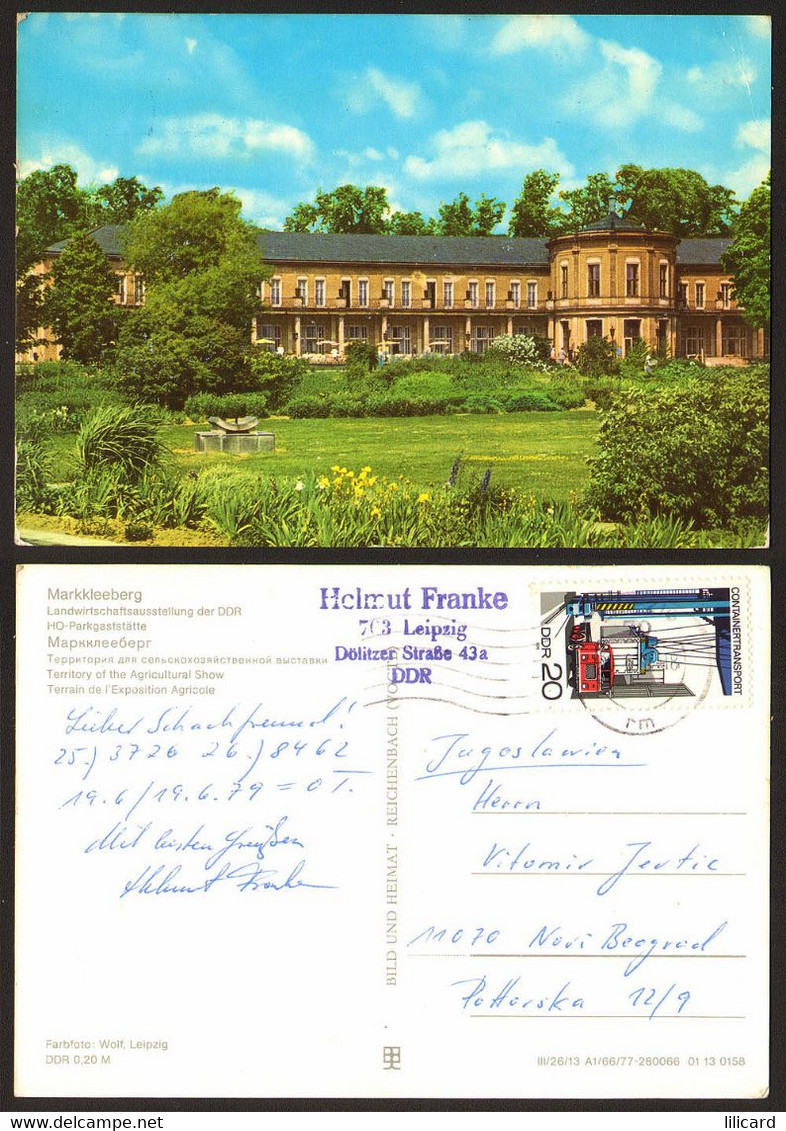 Markkleeberg
Landwirtschaftsausstellung der DDR
HO-Parkgaststätte
Маркклееберг
Территория для сельскохозяйственной выставки
Territory of the Agricultural Show
Terrain de l'Exposition Agricole
Helmut Franke
703 Leipzig
Dölitzer Straße 43a
DDR
CONTAINERTRANSPORT
DDR 20
Lieber Schachfreund!
25.) 3726 26.) 8462
19.6/19.6.79 = 0T.
Mit besten Grüßen
Helmut Franke
BILD UND HEIMAT · REICHENBACH (VOGTL
Jugoslawien
Herrn
Vitomir Jevtic
11070 Novi Beograd
12/9
Farbfoto: Wolf, Leipzig
DDR 0,20 M
III/26/13 A1/66/77-280066 01 13 0158
lilicard